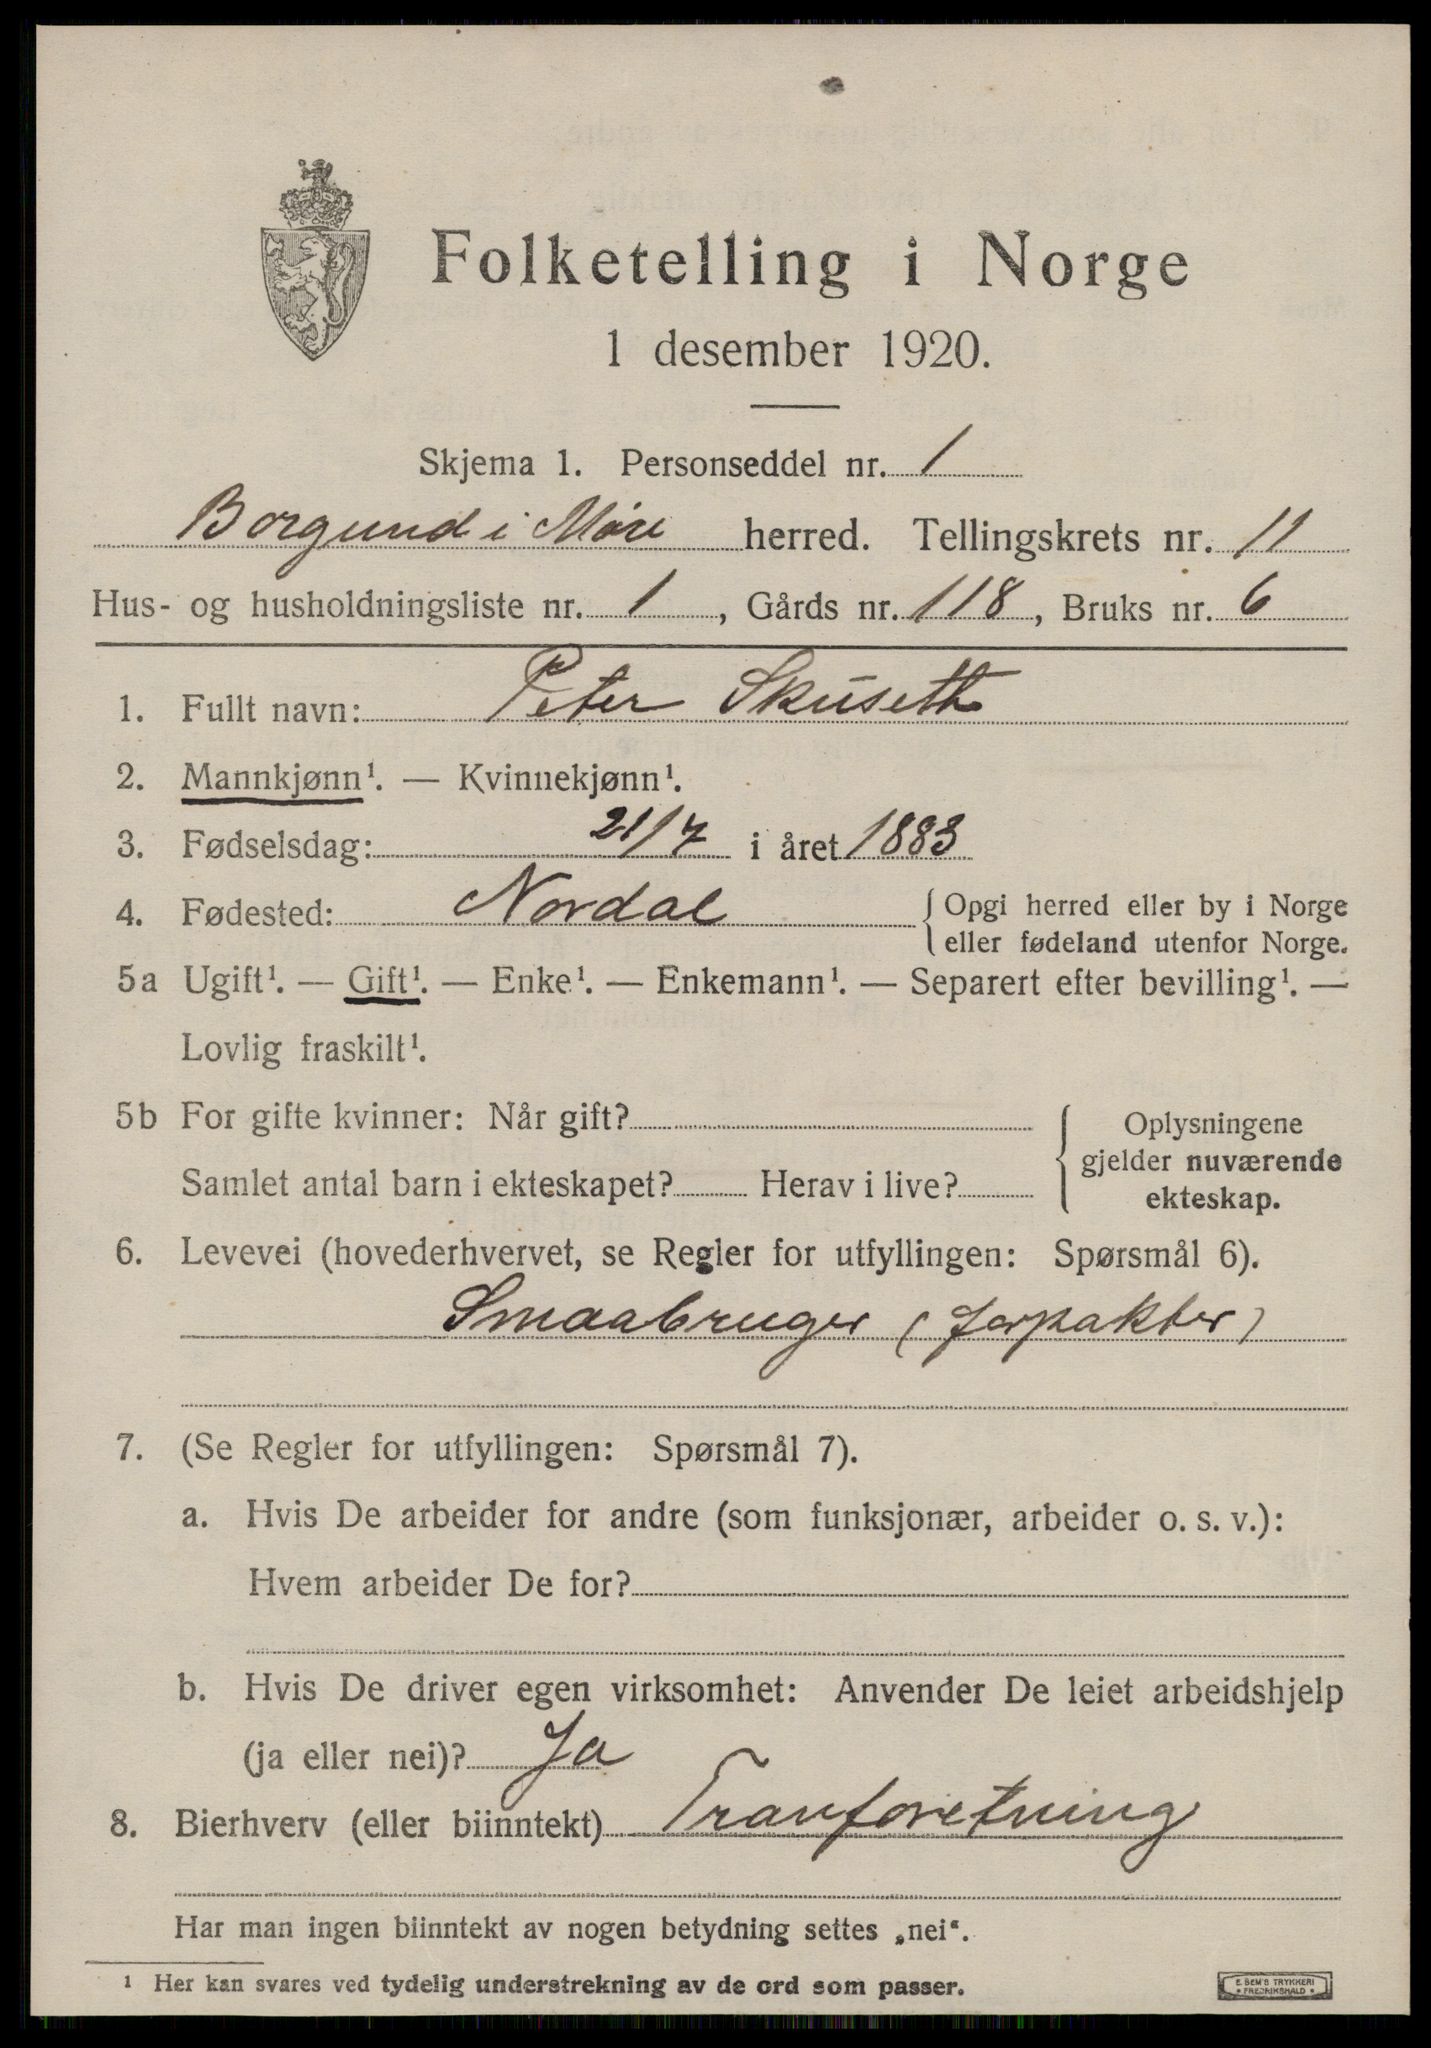 Folketelling i Norge
1 desember 1920.
Skjema 1. Personseddel nr. 1
Borgund i Møre herred. Tellingskrets nr. 11
Hus- og husholdningsliste nr. 1, Gårds nr. 118, Bruks nr. 6
1. Fullt navn: Peter Skuseth
2. Mannkjønn¹. — Kvinnekjønn¹.
3. Fødselsdag: 21/7 i året 1883
4. Fødested: Nordal { Opgi herred eller by i Norge
eller fødeland utenfor Norge.
5a Ugift¹. — Gift¹. — Enke¹. — Enkemann¹. — Separert efter bevilling¹. —
Lovlig fraskilt¹.
5b For gifte kvinner: Når gift? { Oplysningene
gjelder nuværende
Samlet antal barn i ekteskapet? Herav i live? ekteskap.
6. Levevei (hovederhvervet, se Regler for utfyllingen: Spørsmål 6).
Smaabruger (forpakter)
7. (Se Regler for utfyllingen: Spørsmål 7).
a. Hvis De arbeider for andre (som funksjonær, arbeider o. s. v.):
Hvem arbeider De for?
b. Hvis De driver egen virksomhet: Anvender De leiet arbeidshjelp
(ja eller nei)? Ja
8. Bierhverv (eller biinntekt) Tranforetning
Har man ingen biinntekt av nogen betydning settes „nei“.
¹ Her kan svares ved tydelig understrekning av de ord som passer.
E. SEM'S TRYKKERI
* FREDRIKSHALD *